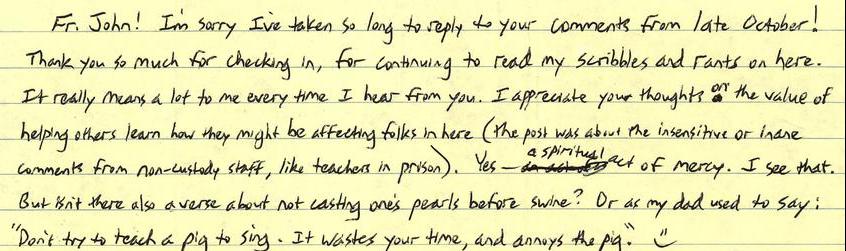 Fr. John! I'm sorry I've taken so long to reply to your comments from late October!
Thank you so much for checking in, for continuing to read my scribbles and rants on here.
It really means a lot to me every time I hear from you. I appreciate your thoughts on the value of
helping others learn how they might be affecting folks in here (the post was about the insensitive or inane
comments from non-custody staff, like teachers in prison). Yes — a spiritual act of mercy. I see that.
But isn't there also a verse about not casting one's pearls before swine? Or as my dad used to say:
"Don't try to teach a pig to sing. It wastes your time, and annoys the pig."